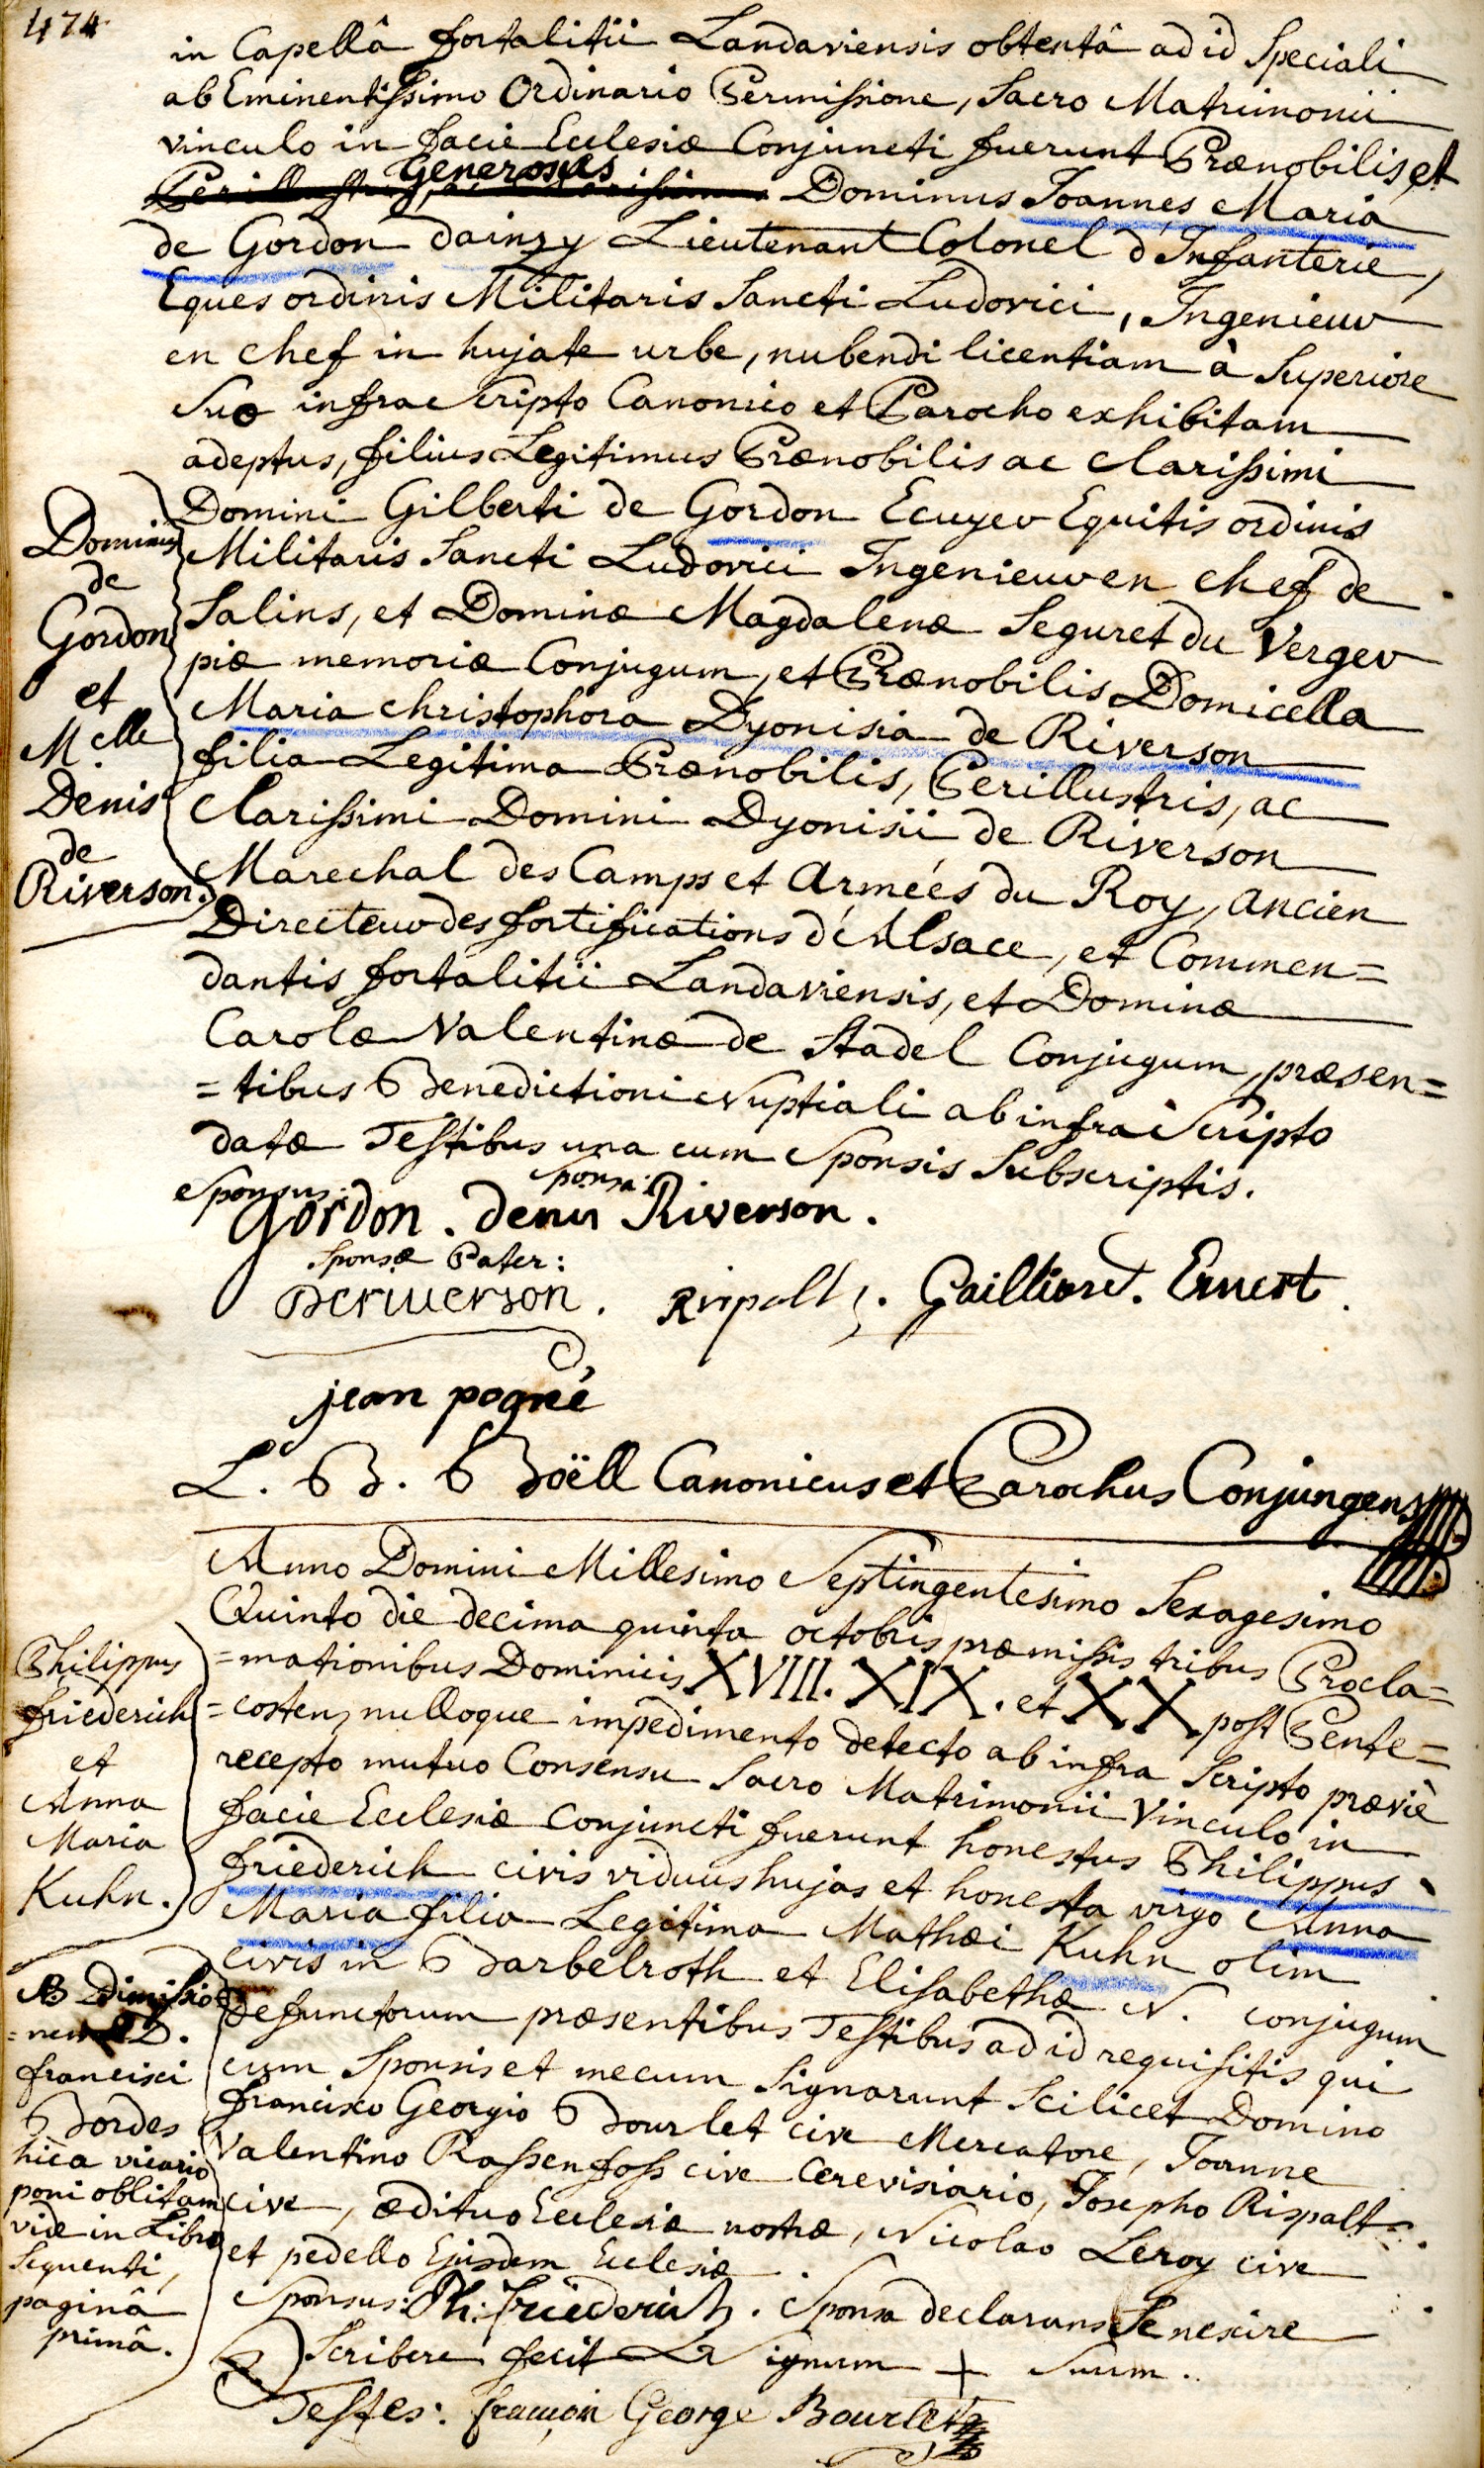 474.
in Capellâ fortalitii Landaviensis obtentâ ad id Speciali
ab Eminentissimo Ordinario Permissione, Sacro Matrimonii
vinculo in facie Ecclesiæ Conjuncti fuerunt Prænobilis, et
Generosus
Dominus Joannes Maria
de Gordon dainzy Lieutenant Colonel d'Infanterie,
Eques ordinis Militaris Sancti Ludovici, Ingenieur
en chef in hujate urbe, nubendi licentiam à Superiore
Suo infra Scripto Canonico et Parocho exhibitam
adeptus, filius Legitimus Prænobilis ac Clarissimi
Domini Gilberti de Gordon Ecuyer Equitis ordinis
Militaris Sancti Ludovici Ingenieur en chef de
Salins, et Dominæ Magdalenæ Seguret du Verger
piæ memoriæ Conjugum, et Prænobilis Domicella
Maria christophora Dyonisia de Riverson
filia Legitima Prænobilis, Perillustris, ac
Clarissimi Domini Dyonisii de Riverson
Marechal des Camps et Armées du Roy, ancien
Directeur des fortifications d'Alsace, et Commen=
dantis fortalitii Landaviensis, et Dominæ
Carolæ Valentinæ de Stadel Conjugum, præsen=
=tibus Benedictioni Nuptiali ab infra Scripto
datæ Testibus una cum Sponsis Subscriptis.
Dominus
de
Gordon
et
Melle
Denis
de
Riverson.
Sponsus: Sponsa:
Gordon. denis Riverson.
Sponsæ Pater:
Deriverson. Rispalt. Gailliard. Ernest.
jean pogné
L. B. Boëll Canonicus et Parochus Conjungens
Anno Domini Millesimo Septingentesimo Sexagesimo
Quinto die decima quinta octobris præmissis tribus Procla=
=mationibus Dominicis XVIII. XIX. et XX post Pente=
=costen, nulloque impedimento detecto ab infra Scripto præviè
recepto mutuo Consensu Sacro Matrimonii Vinculo in
facie Ecclesiæ Conjuncti fuerunt honestus Philippus
friederich civis viduus hujas et honesta virgo Anna
Maria filia Legitima Mathæi Kuhn olim
Civis in Barbelroth et Elisabethæ N. conjugum
Defunctorum præsentibus Testibus ad id requisitis qui
cum Sponsis et mecum Signarunt Scilicet Domino
francisco Georgio Bourlet cive Mercatore, Joanne
Valentino Rassenfoss cive Cerevisiario, Josepho Rispalt
cive, ædituo Ecclesiæ nostræ, Nicolao Leroy cive
et pedello Ejusdem Ecclesiæ.
Philippus
friederich
et
Anna
Maria
Kuhn.
NB Dimissio
=nem D.
francisci
Bordes
hìc a vicario
poni oblitam
vide in Libro
Sequenti,
paginâ
primâ.
Sponsus: Ph: friederich. Sponsa declarans Se nescire
Scribere fecit Signum + Suum.
Testes: françois George Bourlet